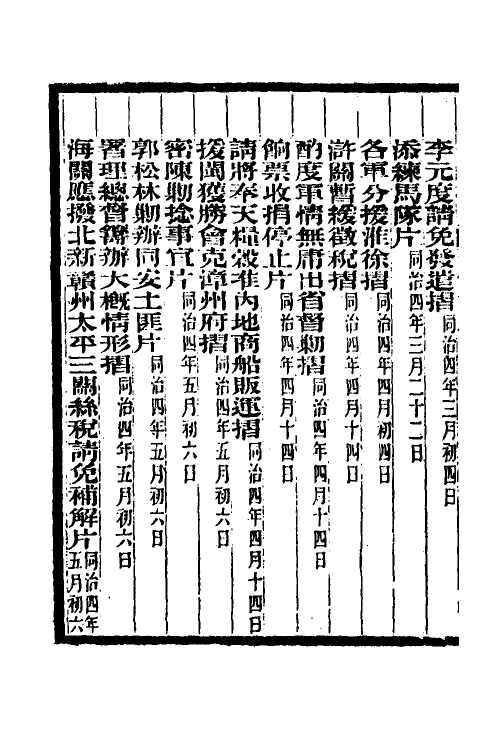 李元度請免發遣摺同治四年三月初四日
添練馬隊片同治四年三月二十二日
各軍分援淮徐摺同治四年四月初四日
滸關暫緩徵稅摺同治四年四月十四日
酌度軍情無庸出省督勦摺同治四年四月十四日
餉票收捐停止片同治四年四月十四日
請將奉天糧穀准內地商船販運摺同治四年四月十四日
援閩獲勝會克漳州府摺同治四年五月初六日
密陳勦捻事宜片同治四年五月初六日
郭松林勦辦同安土匪片同治四年五月初六日
署理總督籌辦大概情形摺同治四年五月初六日
海關應撥北新贛州太平三關絲稅請免補解片同治四年五月初六